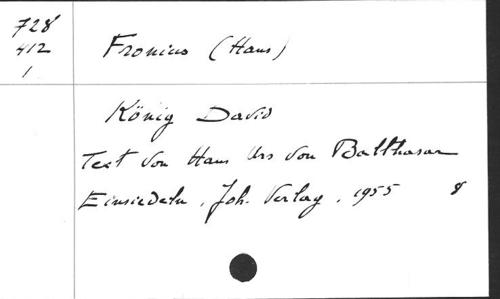 728
412
1
Fronius (Hans)
König David
Text von Hans Urs von Balthasar
Einsiedeln, Joh. Verlag, 1955 8